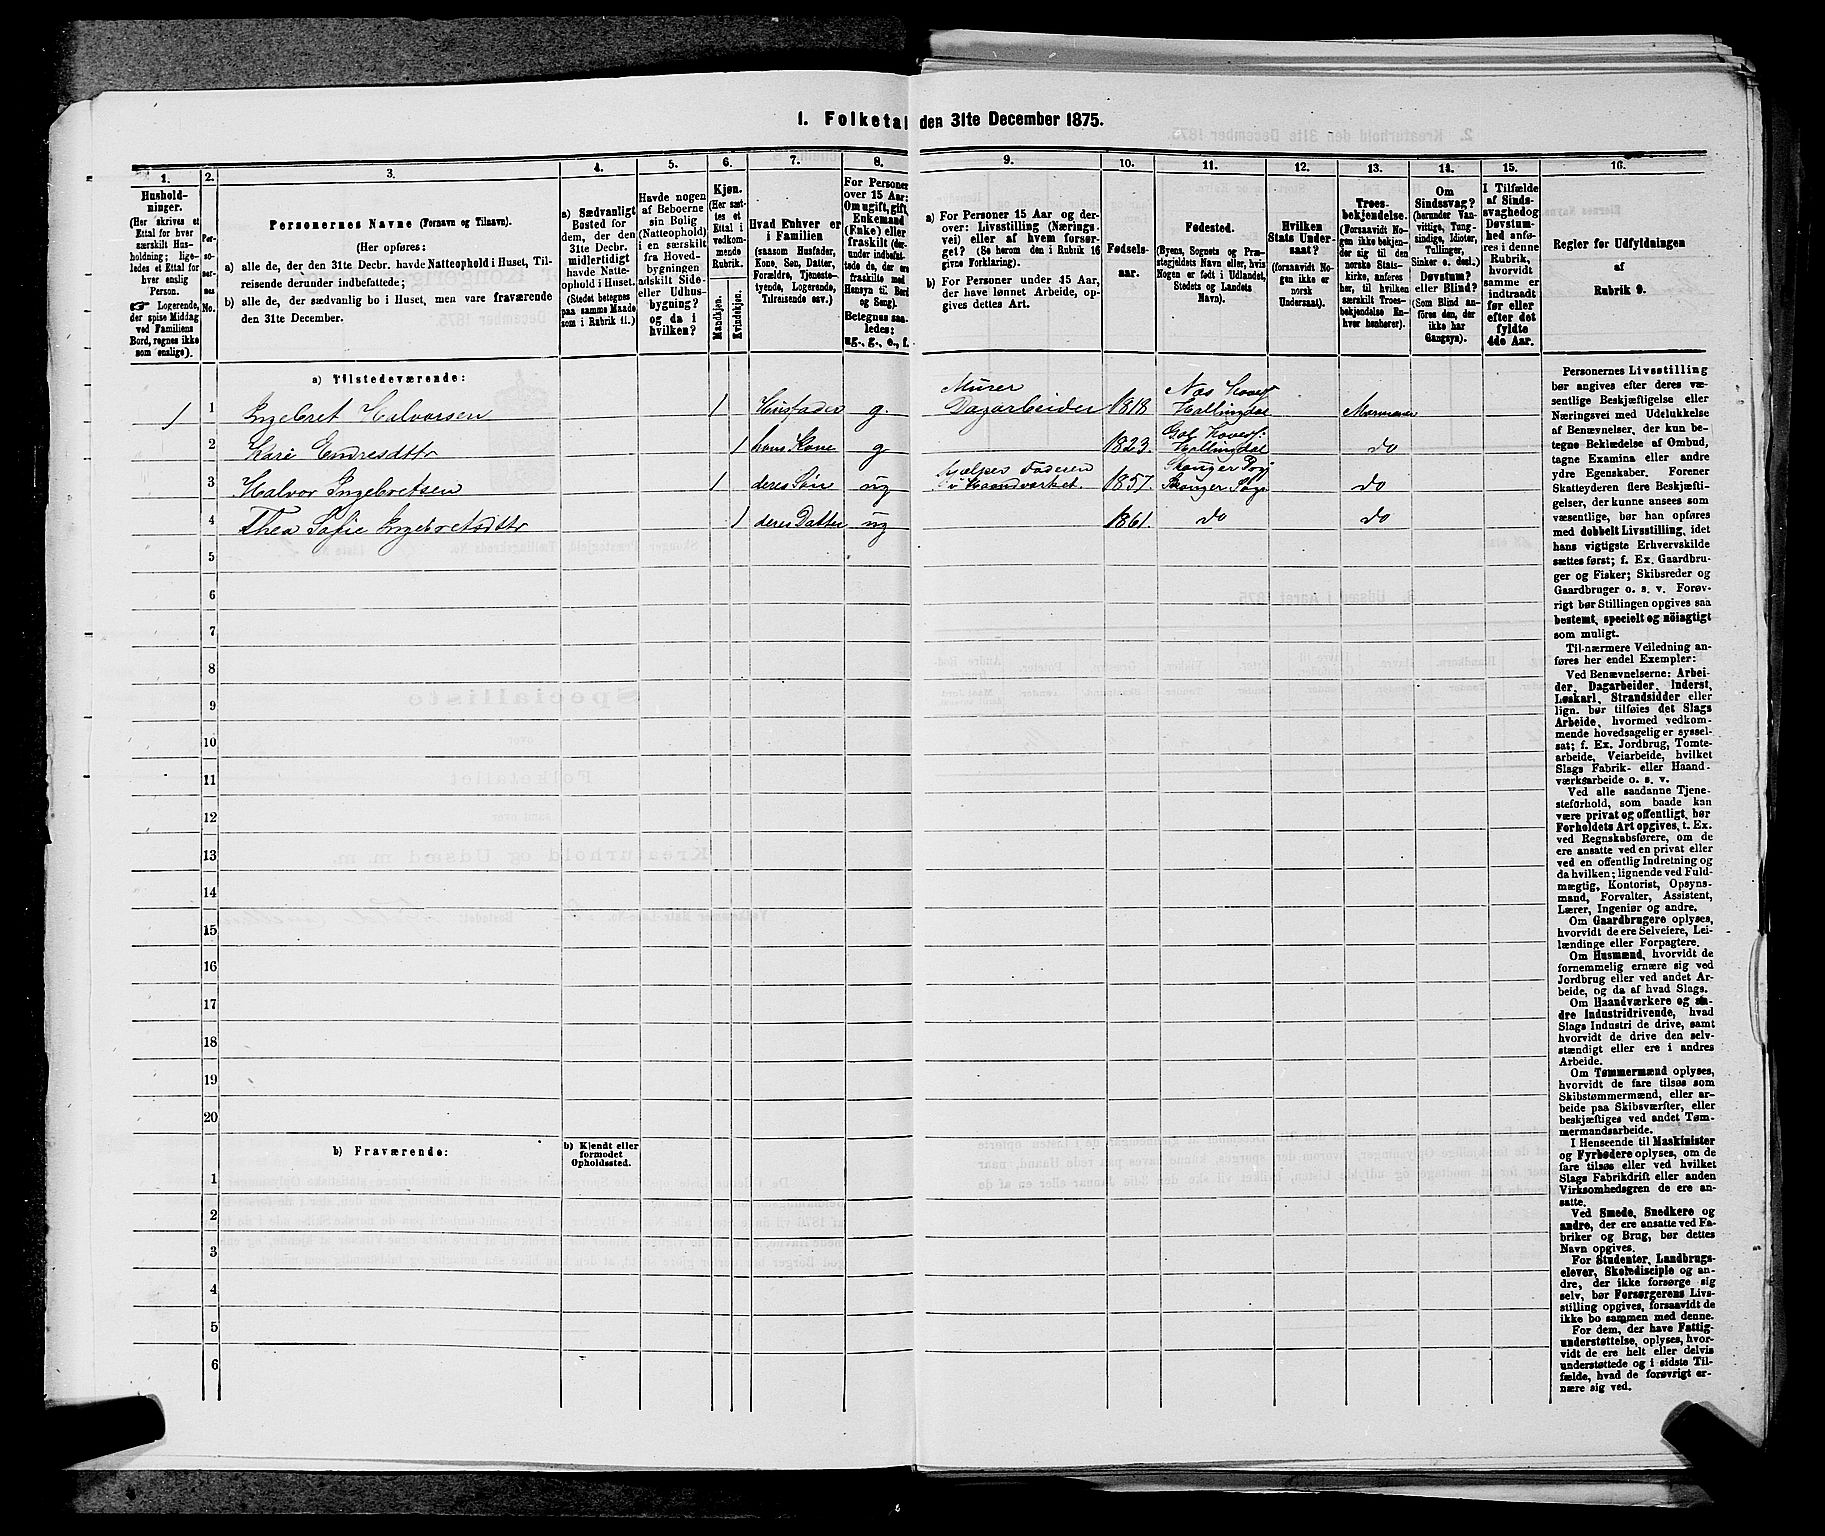 1. Folketal den 31te December 1875.
1.
Hushold-
ninger.
(Her skrives et
Ettal for hver
særskilt Hus-
holdning; lige-
ledes et Ettal for
hver enslig
Person.
☞ Logerende,
der spise Middag
ved Familiens
Bord, regnes ikke
som enslige).
2.
Per-
so-
ner-
nes
No.
3.
Personernes Navne (Fornavn og Tilnavn).
(Her opføres:
a) alle de, der den 31te Decbr. havde Natteophold i Huset, Til-
reisende derunder indbefattede;
b) alle de, der sædvanlig bo i Huset, men vare fraværende
den 31te December.
4.
a) Sædvanligt
Bosted for
dem, der den
31te Decbr.
midlertidigt
havde Natte-
ophold i Huset.
(Stedet betegnes
paa samme Maade
som i Rubrik 11.)
5.
Havde nogen
af Beboerne
sin Bolig
(Natteophold)
i en særskilt
fra Hoved-
bygningen
adskilt Side-
eller Udhus-
bygning?
og da i
hvilken?
6.
Kjøn.
(Her sæt-
tes et
Ettal i
vedkom-
mende
Rubrik.
Mandkjøn.
Kvindekjøn.
7.
Hvad Enhver er
i Familien
(saasom Husfader,
Kone, Søn, Datter,
Forældre, Tjeneste-
tyende, Logerende,
Tilreisende osv.)
8.
For Personer
over 15 Aar:
Om ugift, gift,
Enkemand
(Enke) eller
fraskilt (der-
under indbefat-
tede da, der ere
fraskilte med
Hensyn til Bord
og Seng).
Betegnes saa-
ledes:
ug., g., e., f.
9.
a) For Personer 15 Aar og der-
over: Livsstilling (Nærings-
vei) eller af hvem forsør-
get? (Se herom den i Rubrik 16
givne Forklaring).
b) For Personer under 15 Aar,
der have lønnet Arbeide, op-
gives dettes Art.
10.
Fødsels-
aar.
11.
Fødested.
(Byens, Sognets og Præ-
stegjeldets Navn eller, hvis
Nogen er født i Udlandet,
Stedets og Landets
Navn).
12.
Hvilken
Stats Under-
saat?
(foraavidt No-
gen ikke er
norsk
Undersaat).
13.
Troes-
bekjendelse.
(Forsaavidt No-
gen ikke bekjen-
der sig til den
norske Stats-
kirke, anføres
her, til hvilken
særskilt Troes-
bekjendelse En-
hver henhører).
14.
Om
Sindssvag?
(herunder Van-
vittige, Tung-
sindige, Idioter,
Tullinger,
Sinker o. desl.)
Døvstum?
eller Blind?
(Som Blind an-
føres den, der
ikke har
Gangsyn).
15.
I Tilfælde
af Sinds-
svaghed og
Døvstum-
hed anfø-
res i denne
Rubrik,
hvorvidt
samme er
indtraadt
før eller
efter det
fyldte
4de Aar.
16.
Regler for Udfyldningen
af
Rubrik 9.
a) Tilstedeværende:
1 1 Ingebret Halvorsen 1 Husfader g. Murer Dagarbeider 1818. Næs Hovess Hallingdal Mormoner
2 Kari Endresdtr 1 hans Kone g 1823. Gol Hovess: Hallingdal do
3 Halvor Ingebretsen 1 deres Søn ug hjælper Faderen i Haandværket. 1857. Skouger Pgj Skouger Sogn do
4 Thea Sofie Ingebretsdtr 1 deres Datter ug 1861. do do
5
6
7
8
9
10
11
12
13
14
15
16
17
18
19
20
b) Fraværende:
b) Kjendt eller
formodet
Opholdssted.
1
2
3
4
5
6
Personernes Livsstilling
bør angives efter deres væ-
sentlige Beskjæftigelse eller
Næringsvei med Udelukkelse
af Benævnelser, der kun be-
tegne Beklædelse af Ombud,
tagne Examina eller andre
ydre Egenskaber. Forener
Skatteyderen flere Beskjæfti-
gelser, der kunne ansees som
væsentlige, bør han opføres
med dobbelt Livsstilling, idet
hans vigtigste Erhvervskilde
sættes først; f. Ex. Gaardbru-
ger og Fisker; Skibsreder og
Gaardbruger o. s. v. Forøv-
rigt bør Stillingen opgives saa
bestemt, specielt og nöiagtigt
som muligt.
Til nærmere Veiledning an-
føres her endel Exempler:
Ved Benævnelserne: Arbei-
der, Dagarbeider, Inderst,
Løskarl, Strandsidder eller
lign. bør tilføies det Slags
Arbeide, hvormed vedkom-
mende hovedsagelig er syssel-
sat; f. Ex. Jordbrug, Tomte-
arbeide, Veiarbeide, hvilket
Slags Fabrik- eller Haand-
værksarbeide o. s. v.
Ved alle saadanne Tjene-
steforhold, som baade kan
være privat og offentligt, bør
Forholdets Art opgives, t. Ex.
ved Regnskabsførere, om de
ere ansatte ved en privat eller
ved en offentlig Indretning og
da hvilken; lignende ved Fuld-
mægtig, Kontorist, Opsyns-
mand, Forvalter, Assistent,
Lærer, Ingeniør og andre.
Om Gaardbrugere oplyses,
hvorvidt de ere Selveiere, Lei-
lændinge eller Forpagtere.
Om Husmænd, hvorvidt de
fornemmelig ernære sig ved
Jordbrug eller ved andet Ar-
beide, og da af hvad Slags.
Om Haandværkere og an-
dre Industridrivende, hvad
Slags Industri de drive, samt
hvorvidt de drive den selv-
stændigt eller ere i andres
Arbeide.
Om Tømmermænd oplyses,
hvorvidt de fare tilsøs som
Skibstømmermænd, eller ar-
beide paa Skibsværfter, eller
beskjæftiges ved andet Tøm-
mermandsarbeide.
I Henseende til Maskinister
og Fyrbødere oplyses, om de
fare tilsøs eller ved hvilket
Slags Fabrikdrift eller anden
Virksomhedsgren de ere an-
satte.
Ved Smede, Snedkere og
andre, der ere ansatte ved Fa-
briker og Brug, bør dettes
Navn opgives.
For Studenter, Landbrugs-
elever, Skoledisciple og an-
dre, der ikke forsørge sig
selv, bør Forsørgerens Livs-
stilling opgives, forsaavidt de
ikke bo sammen med denne.
For dem, der have Fattig-
understøttelse, oplyses, hvor-
vidt de ere helt eller delvis
understøttede og i sidste Til-
fælde, hvad de forøvrigt er-
nære sig ved.